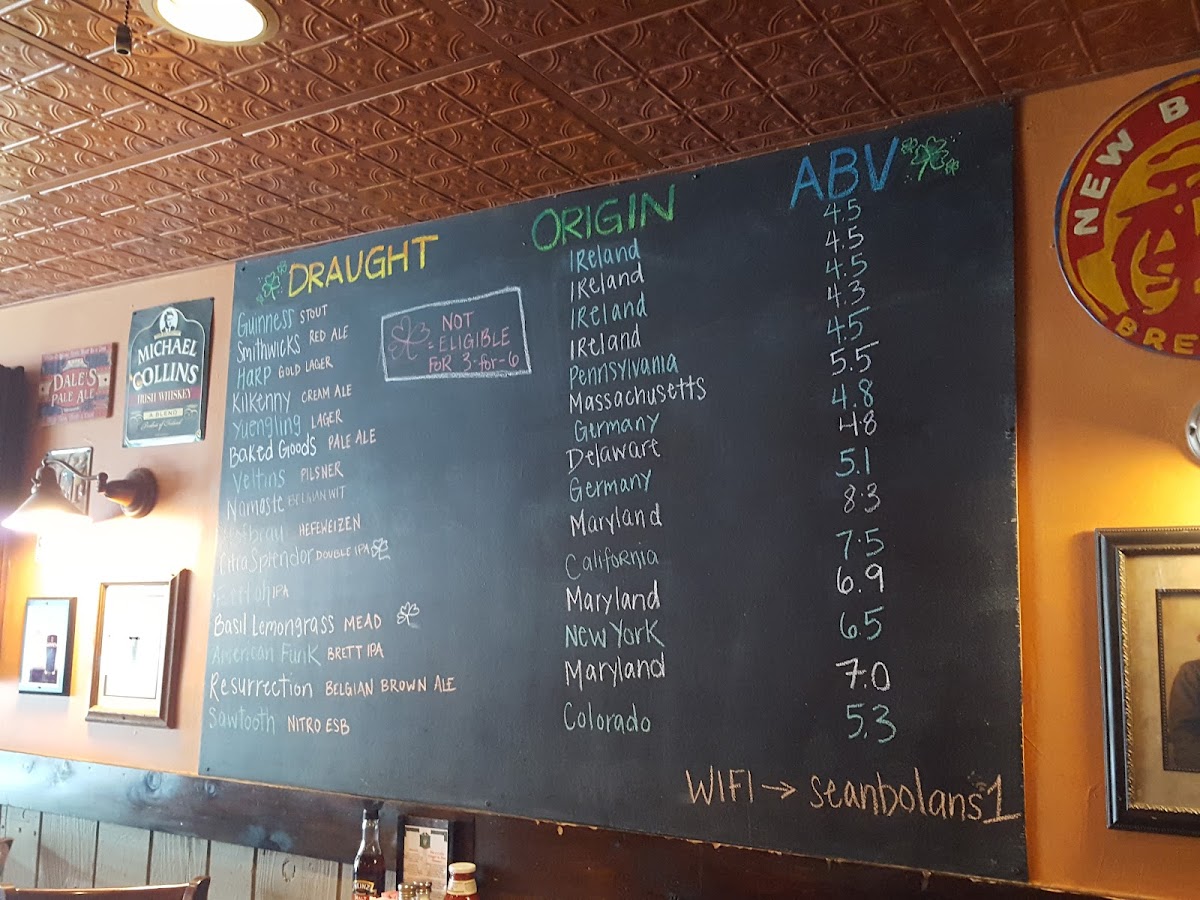 DRAUGHT ORIGIN ABV
Guinness STOUT Ireland 4.5
Smithwicks RED ALE Ireland 4.5
Harp GOLD LAGER Ireland 4.5
Kilkenny CREAM ALE Ireland 4.3
Yuengling LAGER Pennsylvania 4.5
Baked Goods PALE ALE Massachusetts 5.5
Veltins PILSNER Germany 4.8
Namaste BELGIAN WIT Delaware 4.8
Hofbrau HEFEWEIZEN Germany 5.1
Citra Splendor DOUBLE IPA Maryland 8.3
IPA California 7.5
Basil Lemongrass MEAD Maryland 6.9
American Funk BRETT IPA New York 6.5
Resurrection BELGIAN BROWN ALE Maryland 7.0
Sawtooth NITRO ESB Colorado 5.3
NOT
= ELIGIBLE
FOR 3-for-6
WIFI → seanbolans1
DALE'S
PALE ALE
MICHAEL
COLLINS
IRISH WHISKEY
A BLEND
NEW B
BRE